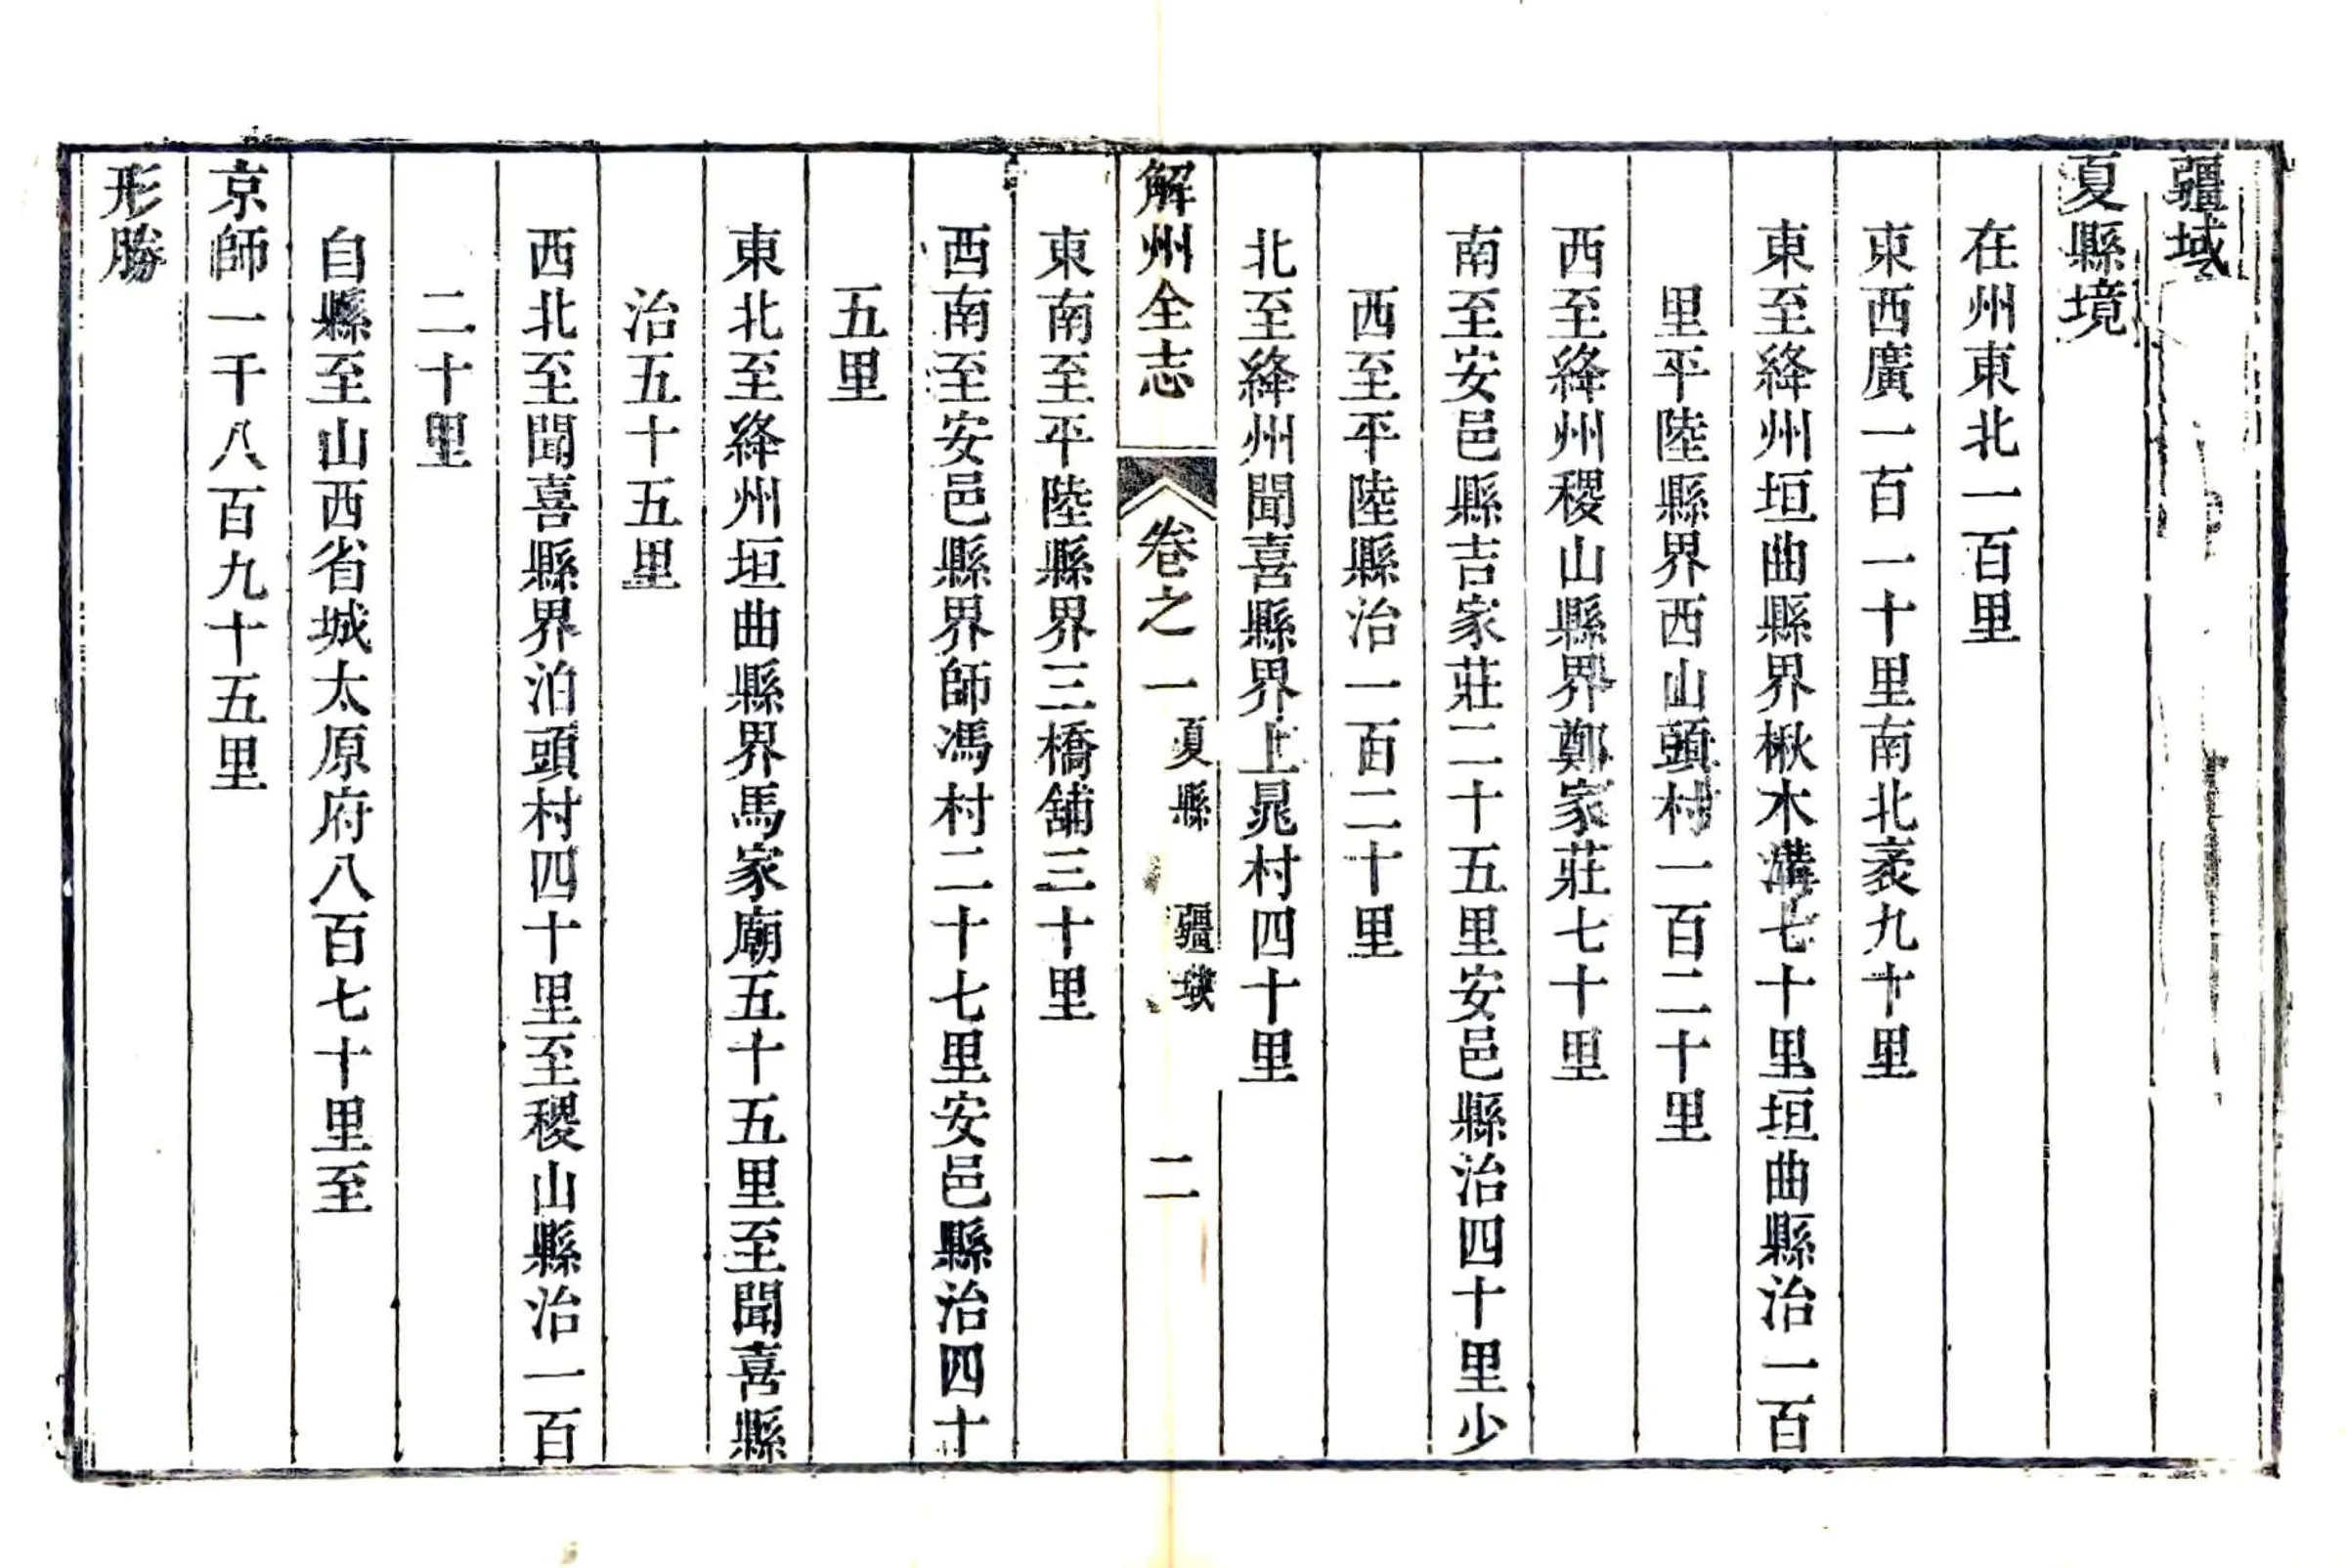 疆域
夏縣境
在州東北一百里
東西廣一百一十里南北袤九十里
東至絳州垣曲縣界楸木溝七十里垣曲縣治一百
里平陸縣界西山頭村一百二十里
西至絳州稷山縣界鄭家莊七十里
南至安邑縣吉家莊二十五里安邑縣治四十里少
西至平陸縣治一百二十里
北至絳州聞喜縣界上晁村四十里
解州全志 卷之一 夏縣 疆域 二
東南至平陸縣界三橋舖三十里
西南至安邑縣界師馮村二十七里安邑縣治四十
五里
東北至絳州垣曲縣界馬家廟五十五里至聞喜縣
治五十五里
西北至聞喜縣界泊頭村四十里至稷山縣治一百
二十里
自縣至山西省城太原府八百七十里至
京師一千八百九十五里
形勝